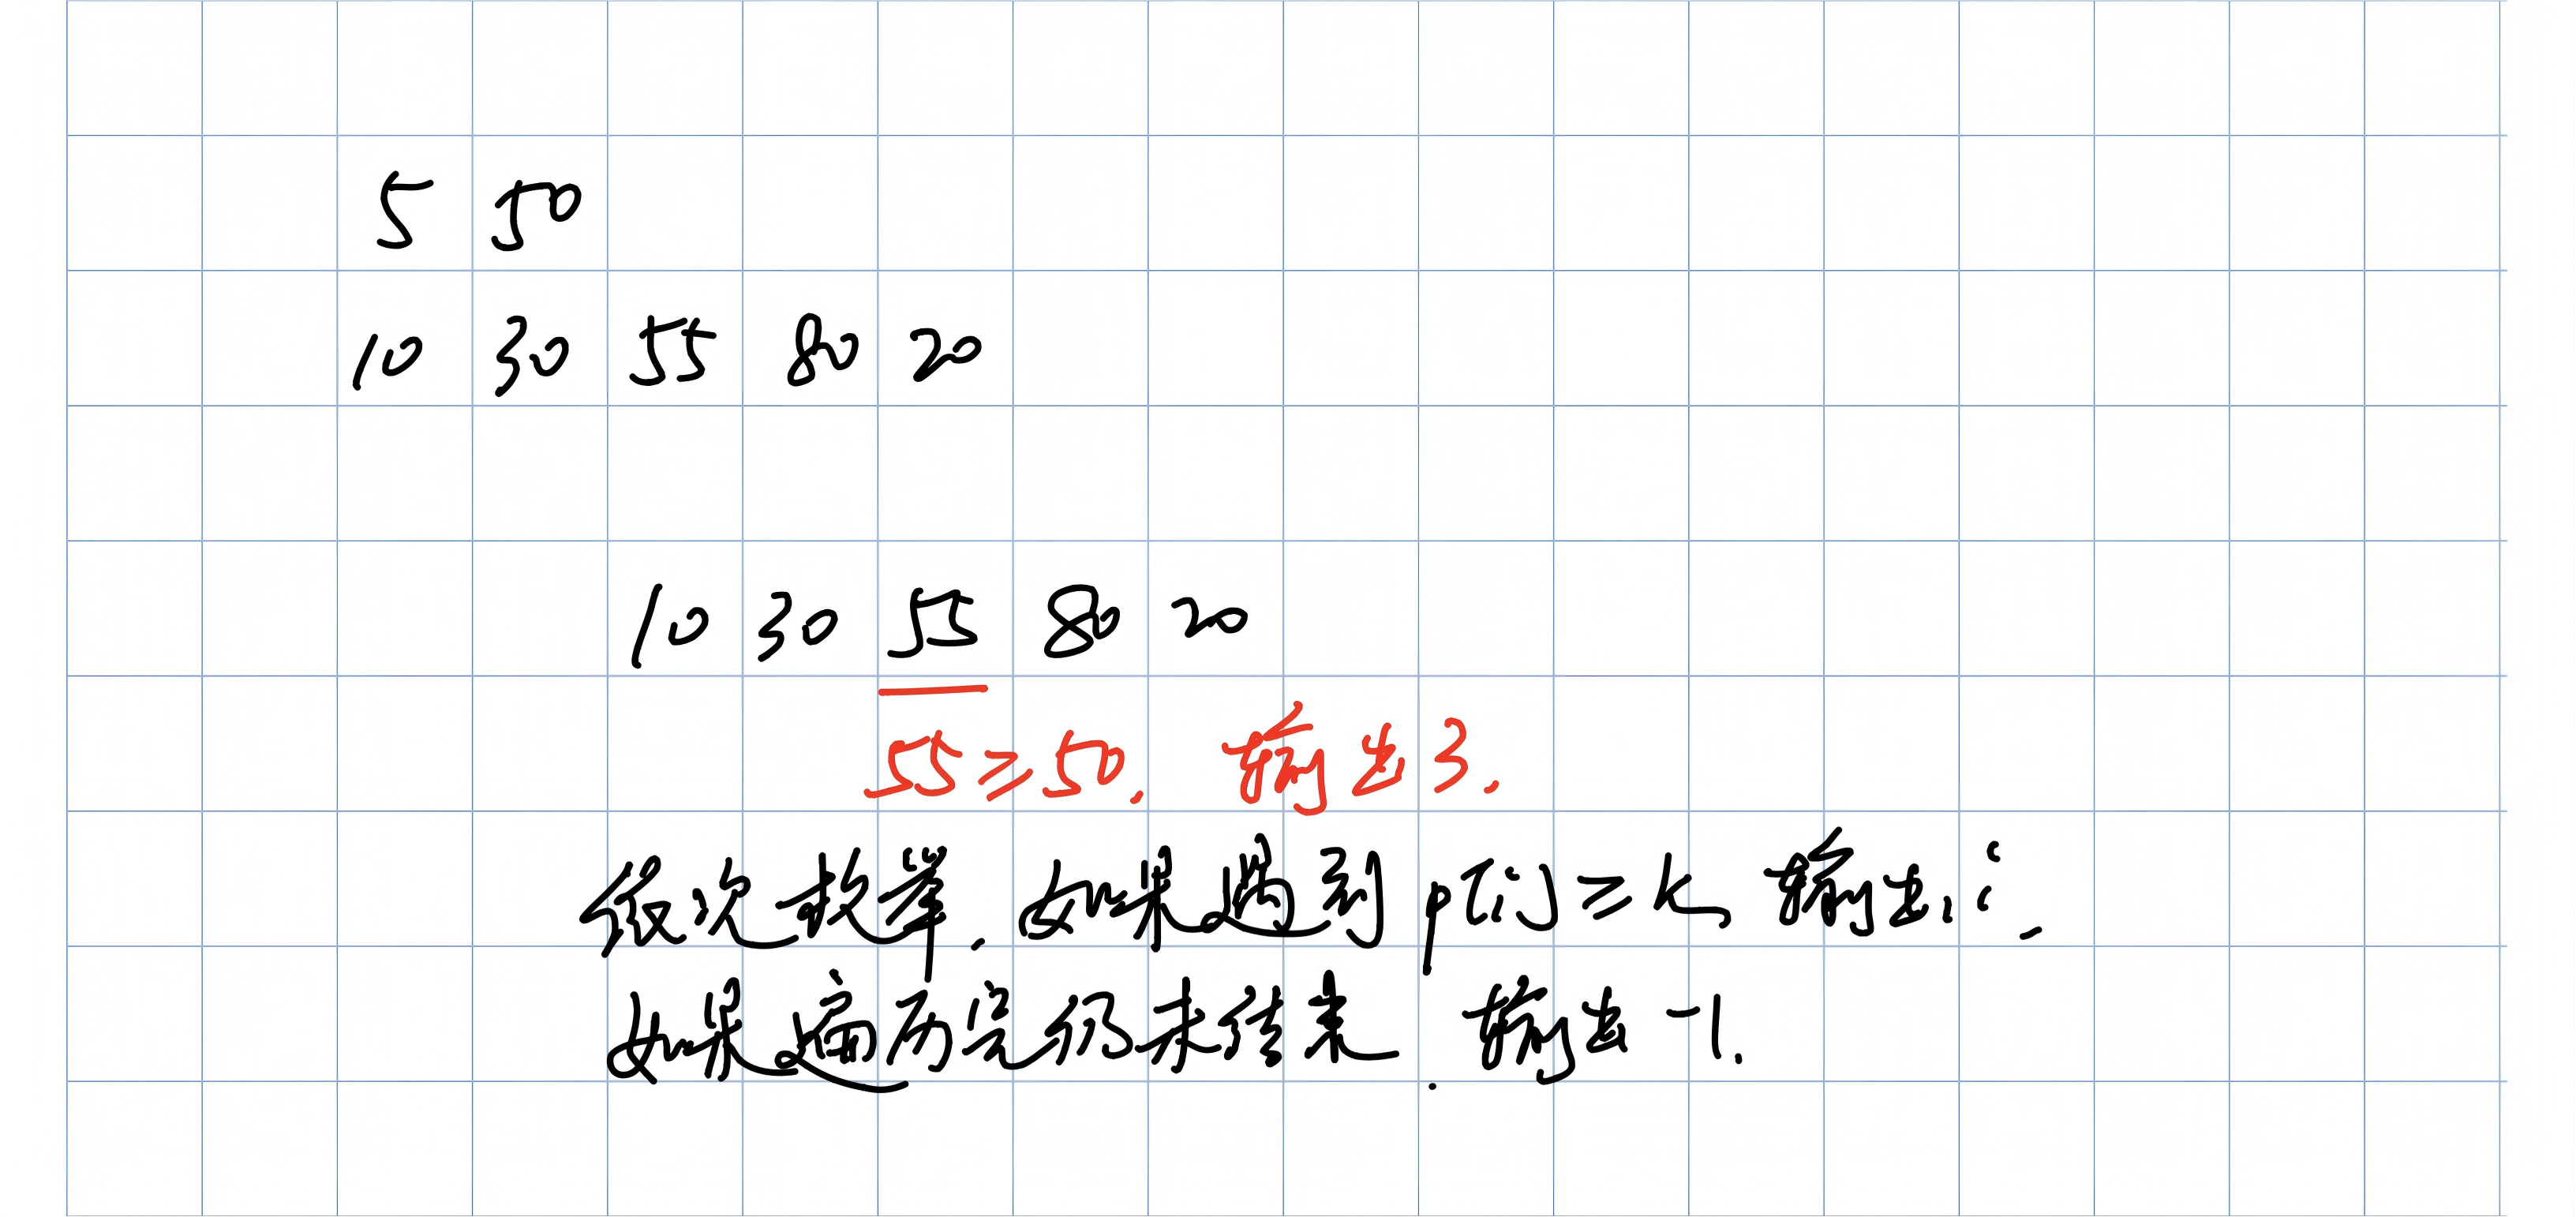 5 50
10 30 55 80 20
10 30 55 80 20
55≥50, 输出3.
依次枚举,如果遇到 p[i]≥k, 输出i.
如果遍历完仍未结束,输出-1.